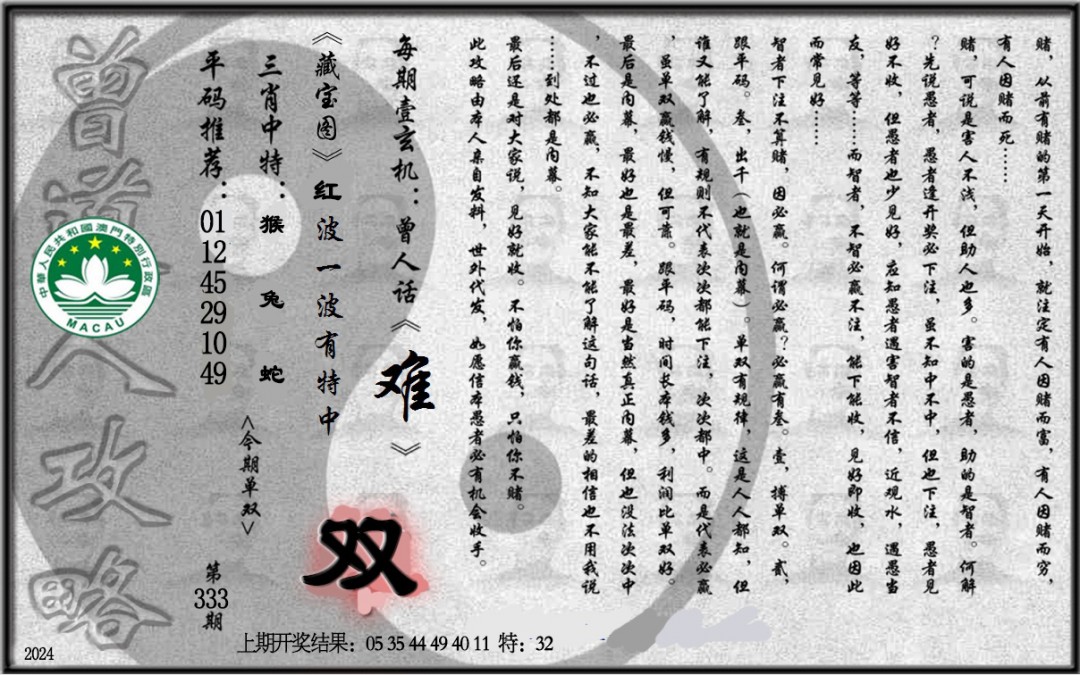 赌，从前有赌的第一天开始，就注定有人因赌而富，有人因赌而穷，
有人因赌而死……
赌，可说是害人不浅，但助人也多。害的是愚者，助的是智者。何解
？先说愚者，愚者逢开奖必下注，虽不知中不中，但也下注，愚者见
好不收，但愚者也少见好，应知愚者遇害智者不信，近观水，遇愚当
友，等等……而智者，不智必赢不注，能下能收，见好即收，也因此
而常见好……
智者下注不算赌，因必赢。何谓必赢？必赢有叁。壹，搏单双。贰，
跟平码。叁，出千（也就是内幕）。单双有规律，这是人人都知，但
谁又能了解，有规则不代表次次都能下注，次次都中。而是代表必赢
，虽单双赢钱慢，但可靠。跟平码，时间长本钱多，利润比单双好。
最后是内幕，最好也是最差，最好是当然真正内幕，但也没法次次中
，不过也必赢，不知大家能不能了解这句话，最差的相信也不用我说
……到处都是内幕。
最后还是对大家说，见好就收。不怕你赢钱，只怕你不赌。
此攻略由本人亲自发料，世外代发，如愿信本愚者必有机会收手。
每期壹玄机：曾人话《难》
《藏宝图》红波一波有特中
双
三肖中特：猴 兔 蛇
<今期单双>
平码推荐：01 12 45 29 10 49
第333期
曾道人攻略
中華人民共和國澳門特別行政區
MACAU
上期开奖结果：05 35 44 49 40 11 特：32
2024